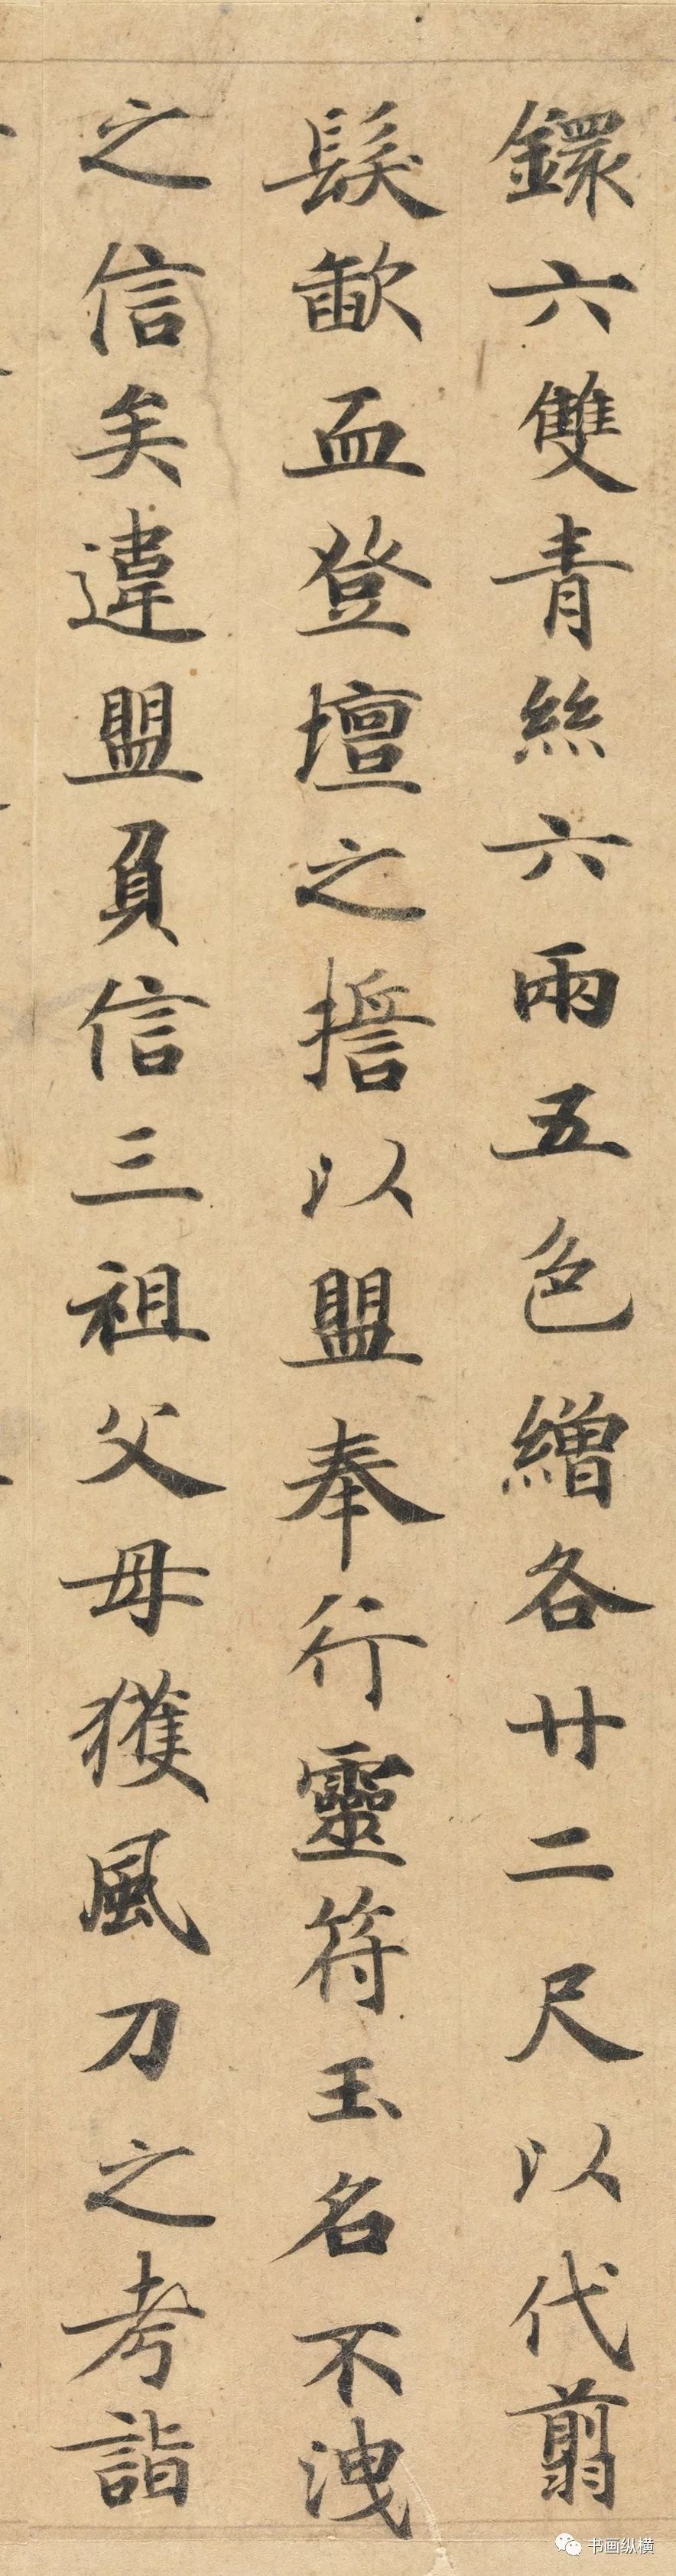 鐶六雙青絲六兩五色繒各廿二尺以代翦
髮歃血登壇之誓以盟奉行靈符玉名不洩
之信矣違盟負信三祖父母獲風刀之考詣
书画纵横